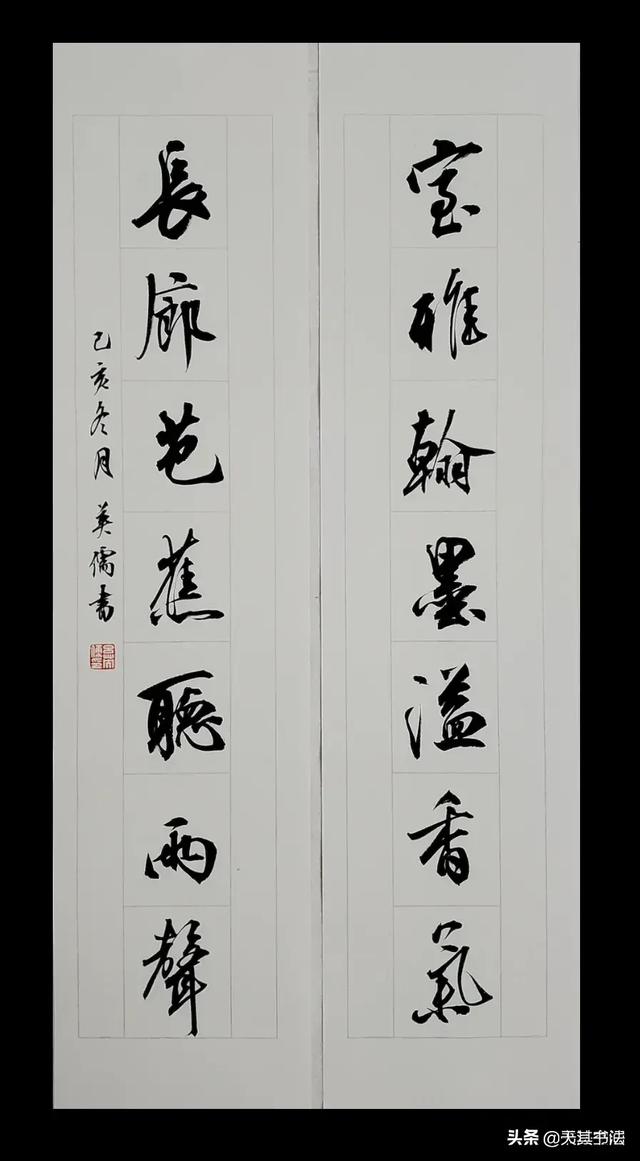 室雅翰墨溢香氣
長廊芭蕉聽雨聲
己亥冬月英儒書
头条 @天其书法